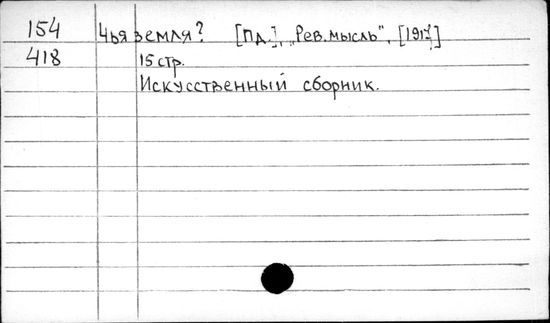 154 Чья земля? [Пд.], „Рев. мысль", [1917]
418 15 стр.
Искусственный сборник.